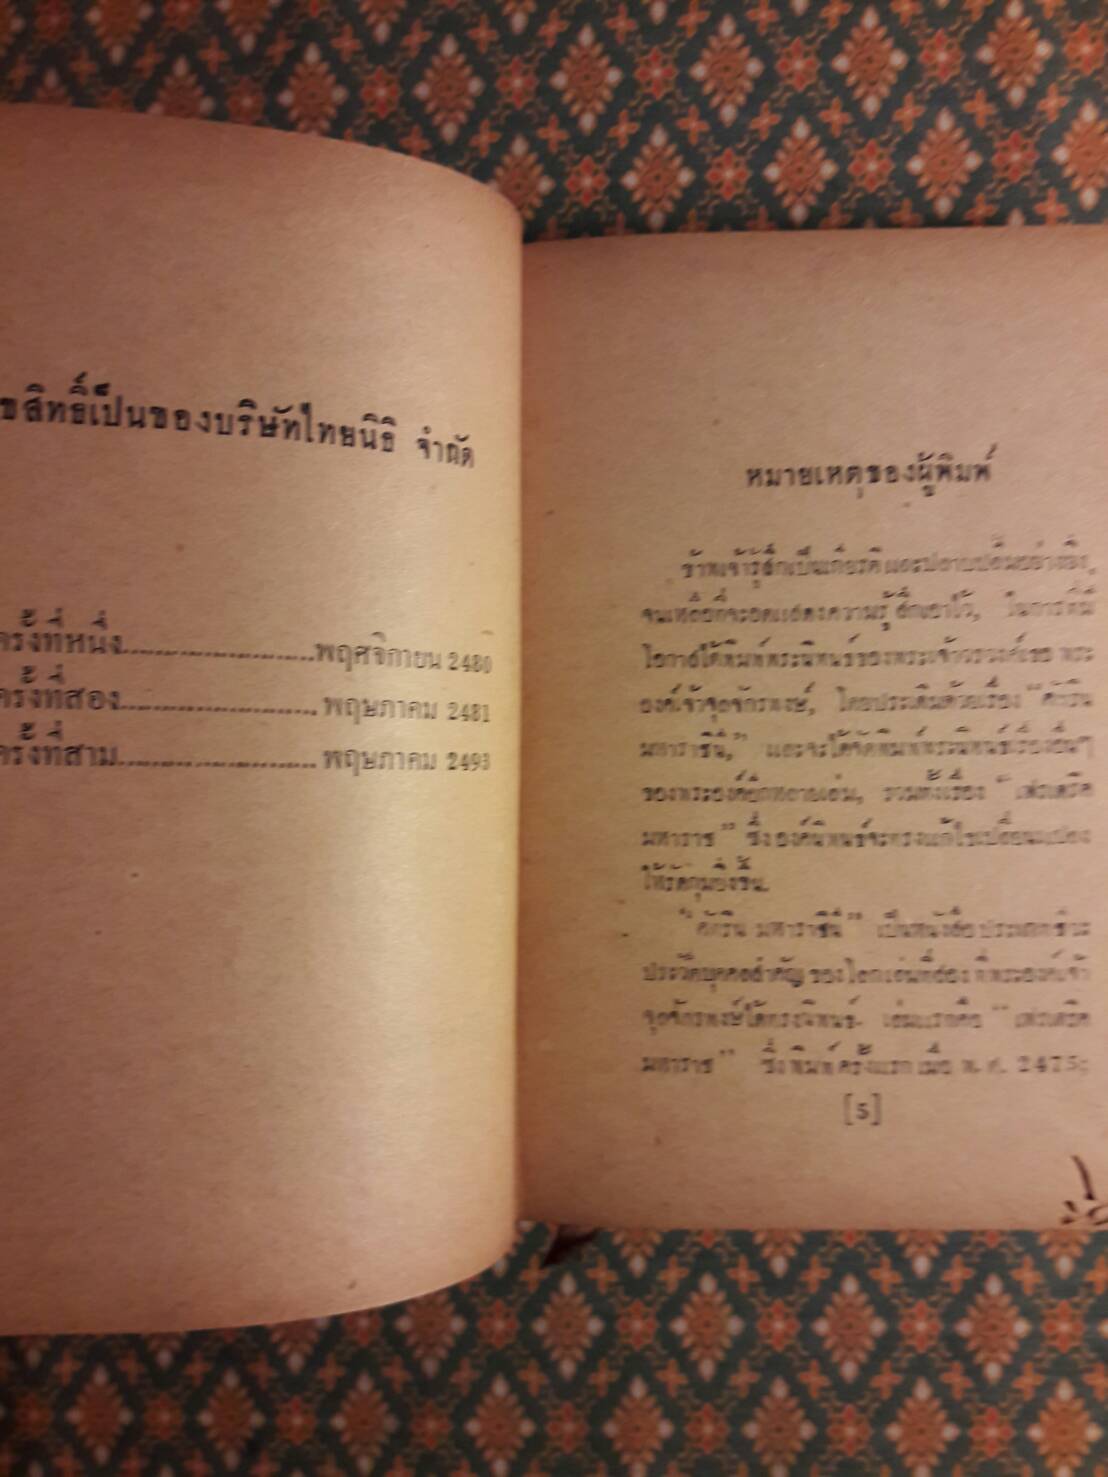 ขสิทธิ์เป็นของบริษัทไทยนิธิ จำกัด
ครั้งที่หนึ่ง........................พฤศจิกายน 2480
ครั้งที่สอง........................ พฤษภาคม 2481
ครั้งที่สาม........................ พฤษภาคม 2493
หมายเหตุของผู้พิมพ์
ข้าพเจ้ารู้สึกเป็นเกียรติและปลาบปลื้มอย่างยิ่ง,
จนเหลือที่จะอดแสดงความรู้สึกเอาไว้, ในการที่มี
โอกาสได้พิมพ์พระนิพนธ์ของพระเจ้าวรวงศ์เธอ พระ
องค์เจ้าจุลจักรพงษ์, โดยประเดิมด้วยเรื่อง “คัทริน
มหาราชินี,” และจะได้จัดพิมพ์พระนิพนธ์เรื่องอื่นๆ
ของพระองค์อีกหลายเล่ม, รวมทั้งเรื่อง “เฟรเดริค
มหาราช” ซึ่งองค์นิพนธ์จะทรงแก้ไขเปลี่ยนแปลง
ให้รัดกุมยิ่งขึ้น.
“คัทริน มหาราชินี” เป็นหนังสือประเภทชีวะ
ประวัติบุคคลสำคัญของโลกเล่มที่สอง ที่พระองค์เจ้า
จุลจักรพงษ์ได้ทรงนิพนธ์. เล่มแรกคือ “เฟรเดริค
มหาราช” ซึ่งพิมพ์ครั้งแรกเมื่อ พ.ศ. 2475;
[5]